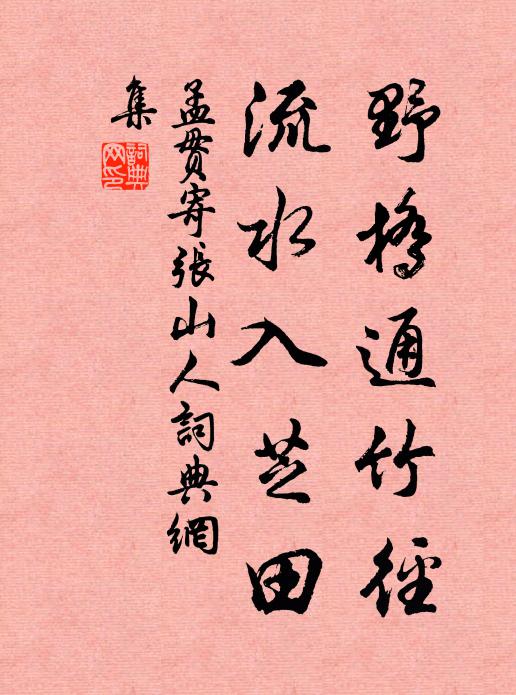 野橋通竹徑
流水入芝田
孟貫寄張山人詞典網
集
詞典
网印